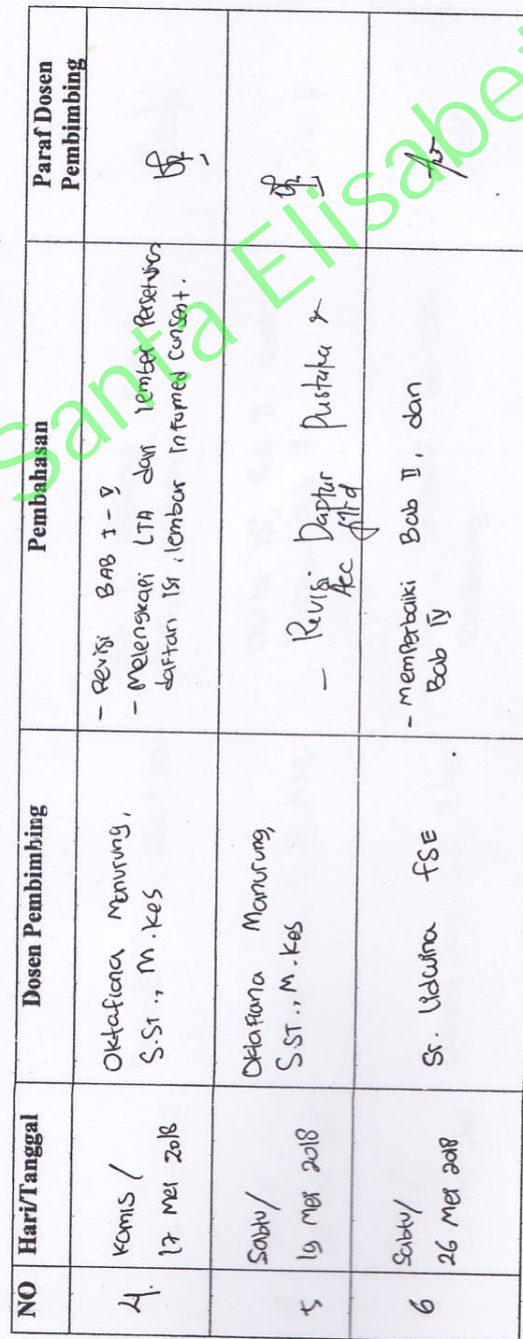 Santa Elisabe
NO Hari/Tanggal Dosen Pembimbing Pembahasan Paraf Dosen Pembimbing
4. Kamis /
17 Mei 2018
Oktafiana Manurung,
S.ST., M.Kes
- Revisi BAB I - V
- Melengkapi LTA dari lembar Persetujuan
daftar ISI, lembar Informed Consent.
5 Sabtu/
19 Mei 2018
Oktafiana Manurung,
S.ST., M.Kes
- Revisi Daptar Pustaka &
Acc
6 Sabtu/
26 Mei 2018
Sr. Lidwina FSE
- memperbaiki Bab II, dan
Bab IV